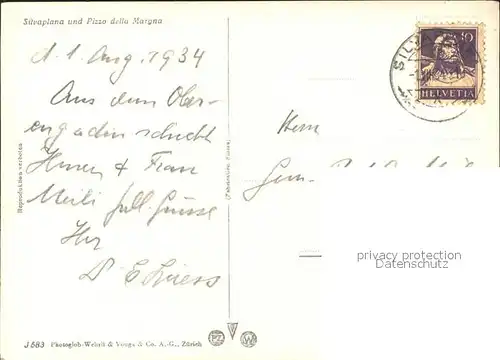 Silvaplana und Pizzo della Margna
d. 1. Aug. 1934
Aus dem Ober-
engadin schickt
Ihnen & Frau
Meili frdl. Grüsse
Ihr
Dr E
Reproduktion verboten
10
HELVETIA
SILVA
Herrn
privacy protection
Datenschutz
J 583 Photoglob-Wehrli & Vouga & Co. A.-G., Zürich
PZ
W